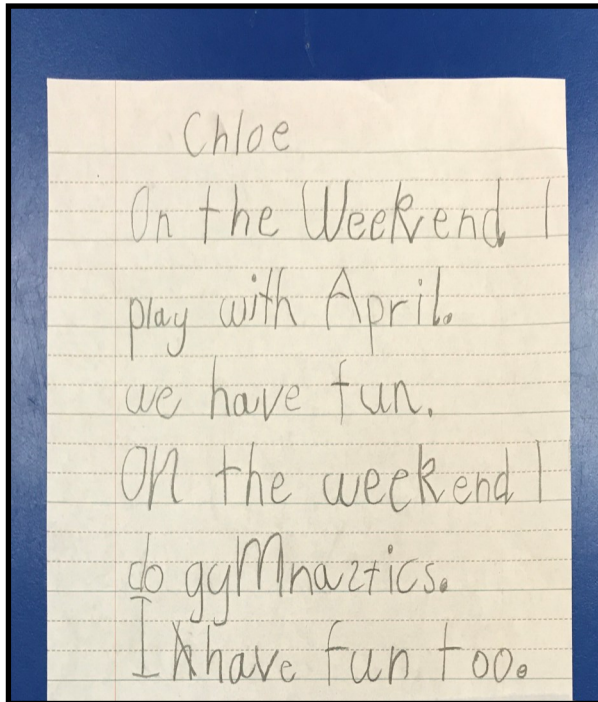 Chloe
On the Weekend I
play with April.
we have fun.
ON the weekend I
do gyMnaztics.
I have fun too.